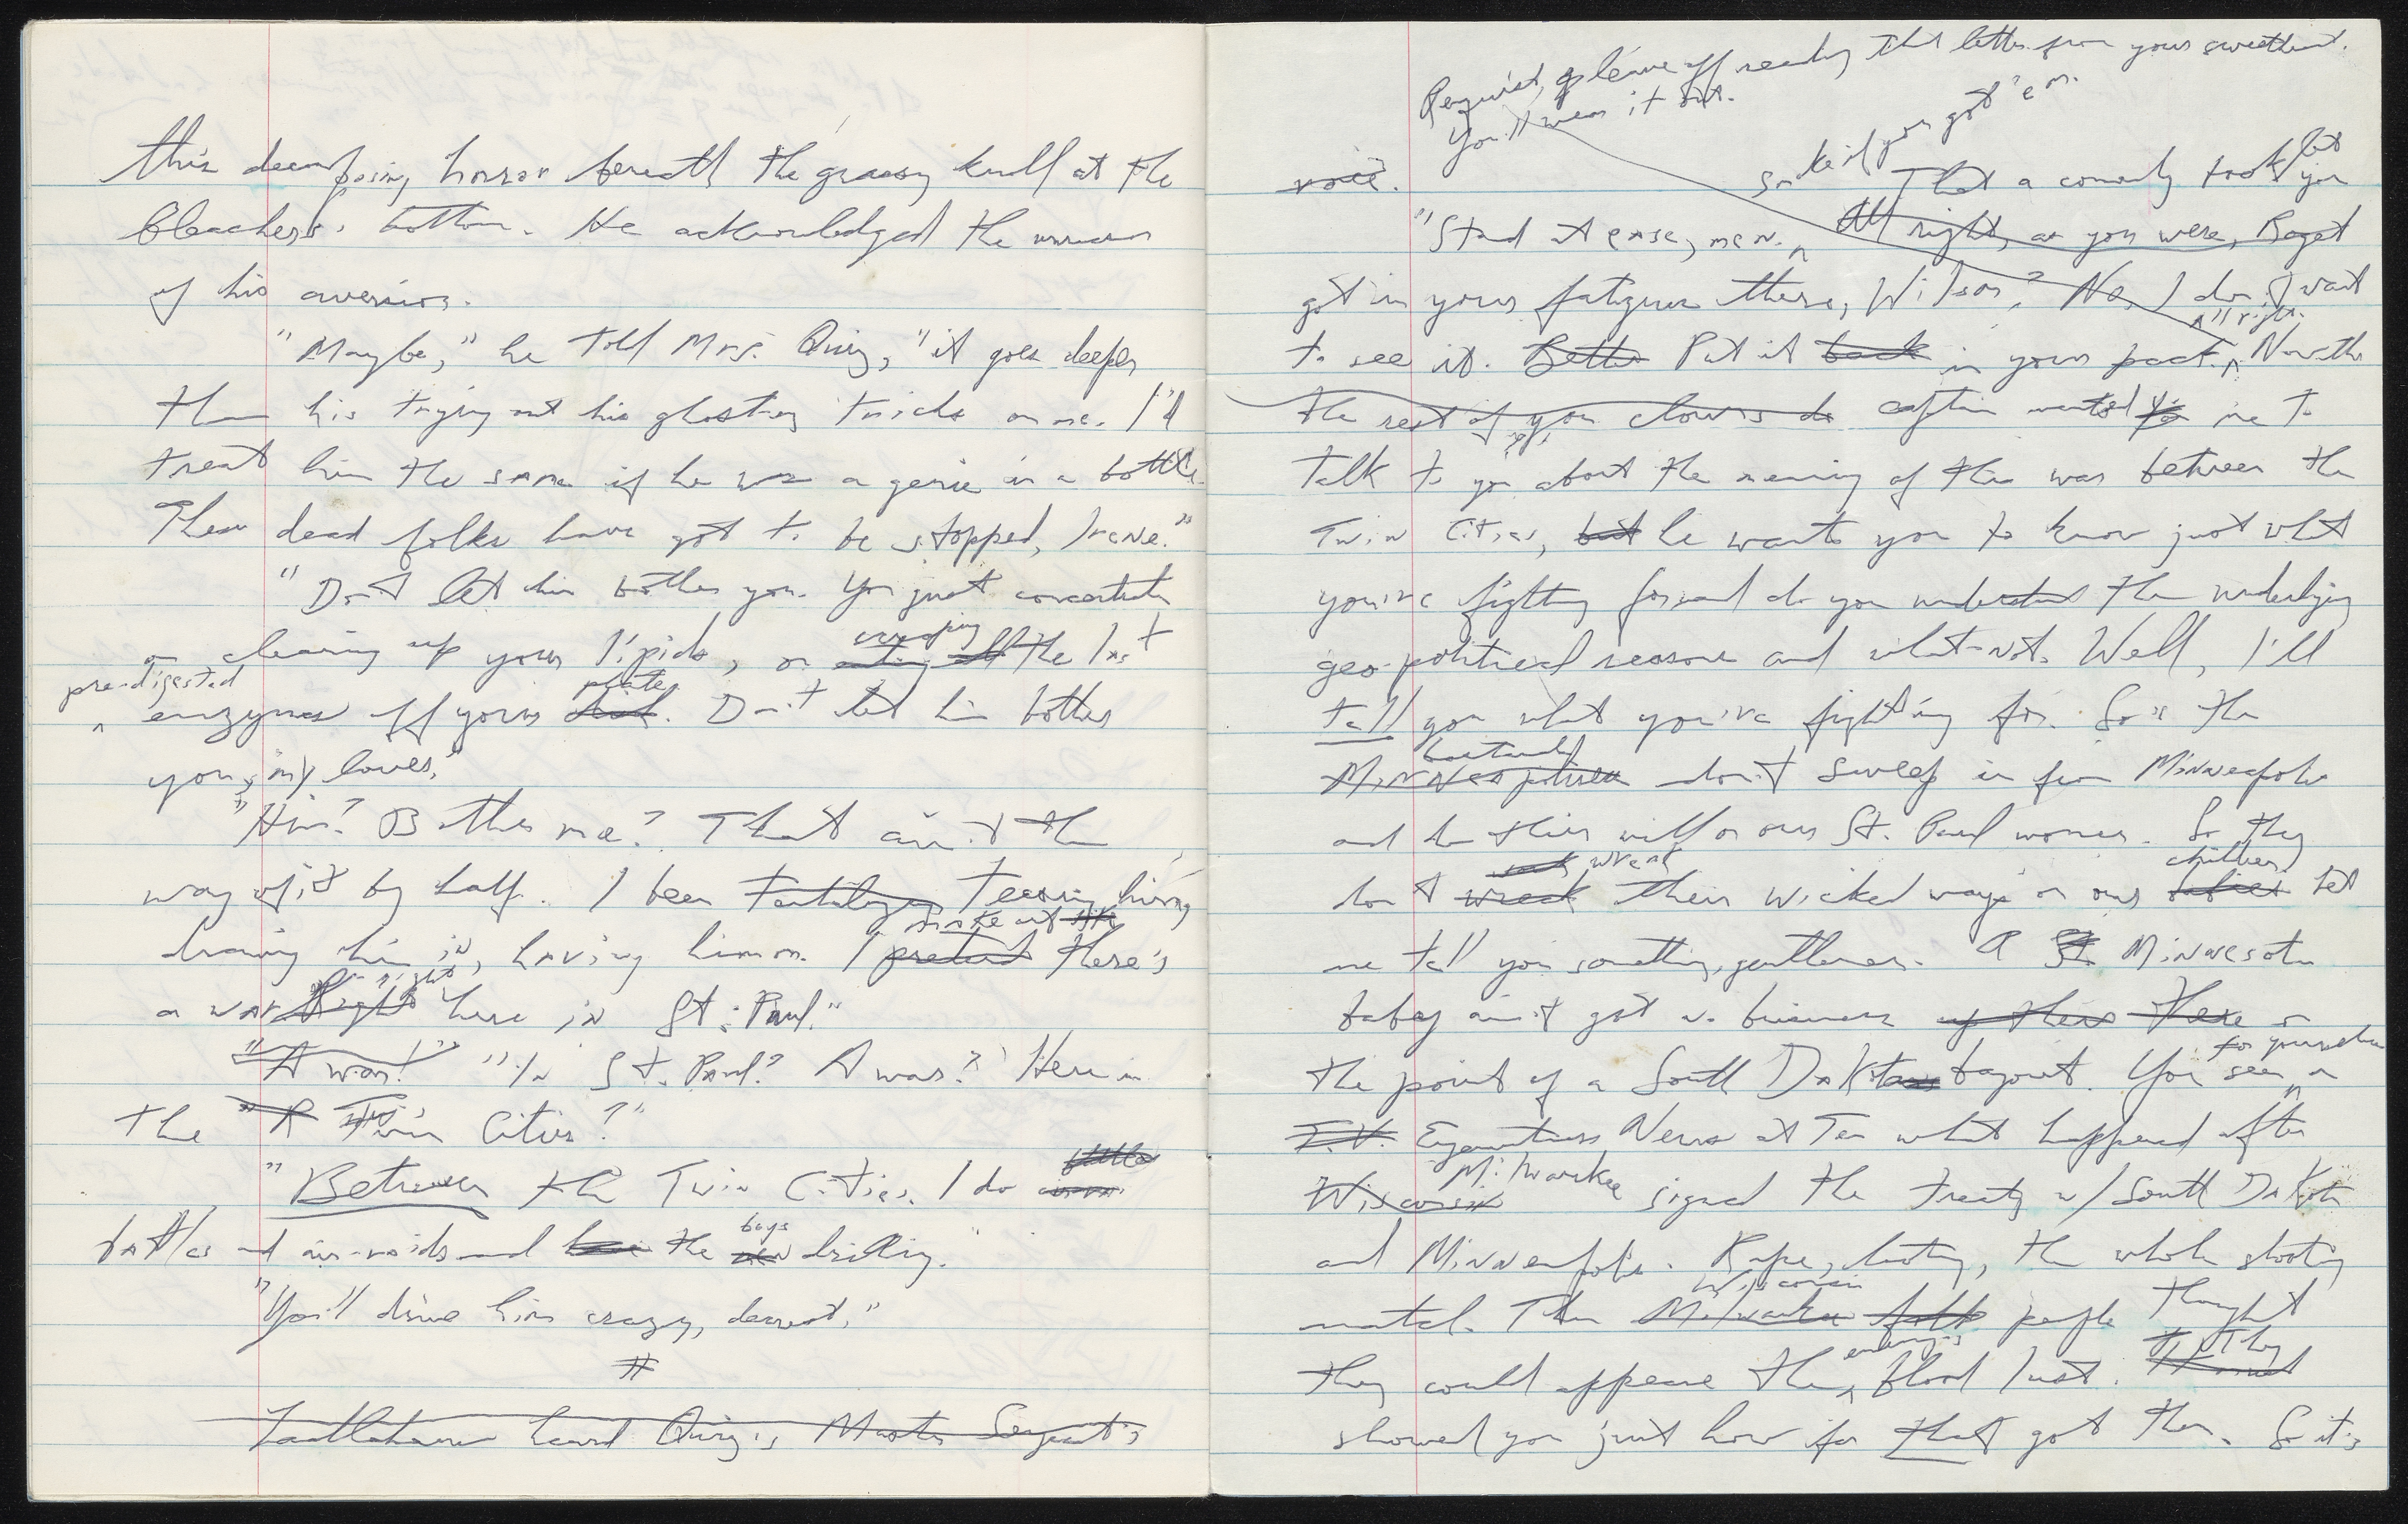 this deem posing horror beneath the grassy knoll at the
bleachers' bottom. He acknowledged the
of his aversion.
"Maybe," he told Mrs. Quiz, "it goes deeper
than his trying out his ghosting tricks on me. I'd
treat him the same if he was a genie in a bottle.
Them dead folks have got to be stopped, Irene."
"Don't let him bother you. You just concentrate
on clearing up your lipids, on scraping the last
pre-digested enzymes off your plate. Don't let him bother
you, my loves."
"Him? Bother me? That ain't the
way of it by half. I been tantalizing teasing him,
drawing him in, having him on. I pretend make out like there's
a war Right right here in St. Paul."
"A war!" "In St. Paul? A war? Here in
the Twin Cities?"
"Between the Twin Cities. I do battles
battles and air-raids and the men boys drilling."
"You'll drive him crazy, dearest."
#
Ladlehaus heard Quiz's Master Sergeant's
Requist, leave off reading that letter from your sweetheart.
You'll wear it out.
Smoke if you got 'em.
voice. That a comedy book
"Stand at ease, men. All right, as you were, let you
got in your fatigues there, Wilson? No, I don't want
to see it. Better Put it back in your pack. All right. Now the
the rest of you clowns do captain wanted me to
talk to you about the meaning of this war between the
Twin Cities, but he wants you to know just what
you're fighting for and do you understand the underlying
geo-political reasons and what-not. Well, I'll
tell you what you're fighting for. So's the
Minneapolisen bastards don't sweep in from Minneapolis
and do their will on our St. Paul women. So they
don't wreck wreak their wicked ways on our babies children. Let
me tell you something, gentlemen. A St. Minnesota
baby ain't got no business up there there on
the point of a South Dakota bayonet. You seen for yourselves on
T.V. Eyewitness News at Ten what happened after
Wisconsin Milwaukee signed the treaty w/ South Dakota
and Minneapolis. Rape, looting, the whole shooting
match. Then Milwaukee Wisconsin folk people thought
they could appease the enemy's blood lust. They
showed you just how far that got them. So it's